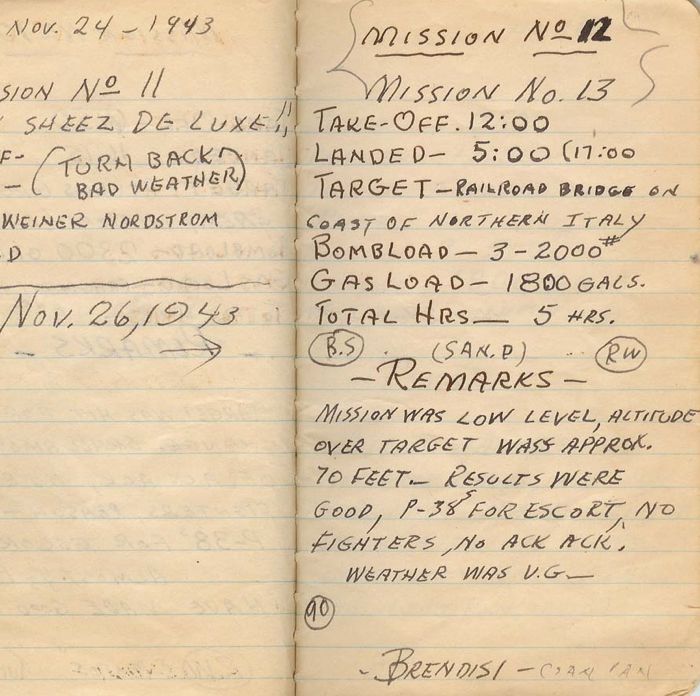 Nov. 24 - 1943
SION No 11
SHEEZ DE LUXE!!
F- (TURN BACK
- BAD WEATHER)
WEINER NORDSTROM
D
Nov. 26, 1943
MISSION No 12
MISSION No. 13
TAKE-OFF. 12:00
LANDED - 5:00 (17:00
TARGET - RAILROAD BRIDGE ON
COAST OF NORTHERN ITALY
BOMBLOAD - 3-2000#
GAS LOAD - 1800 GALS.
TOTAL HRS - 5 HRS.
B.S (SAN.P) RW
- REMARKS -
MISSION WAS LOW LEVEL, ALTITUDE
OVER TARGET WASS APPROX.
70 FEET - RESULTS WERE
GOOD, P-38s FOR ESCORT, NO
FIGHTERS, NO ACK ACK.
WEATHER WAS V.G -
90
- BRENDISI -